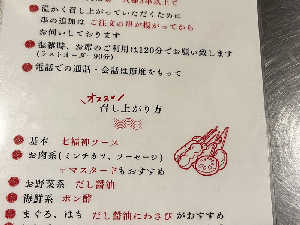 温かく召し上がっていただくために
串の追加は ご注文の串が揚がってから
お伺いしております
混雑時、お席のご利用は120分でお願い致します
(ラストオーダー 90分)
電話での通話・会話は節度をもって
オススメ!
召し上がり方
基本 七福神ソース
お肉系(ミンチカツ、ソーセージ)
マスタードもおすすめ
お野菜系 だし醤油
海鮮系 ポン酢
まぐろ、はも だし醤油にわさびがおすすめ